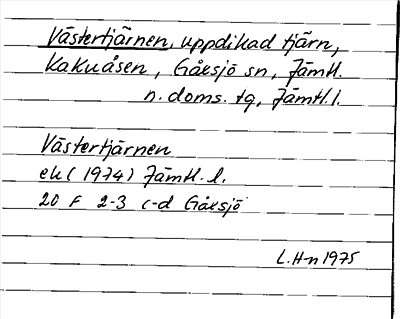 Västertjärnen, uppdikad tjärn,
Kakuåsen, Gåxsjö sn, Jämtl.
n. doms. tg, Jämtl. l.
Västertjärnen
ek (1974) Jämtl. l.
20 F 2-3 c-d Gåxsjö
L. H-n 1975